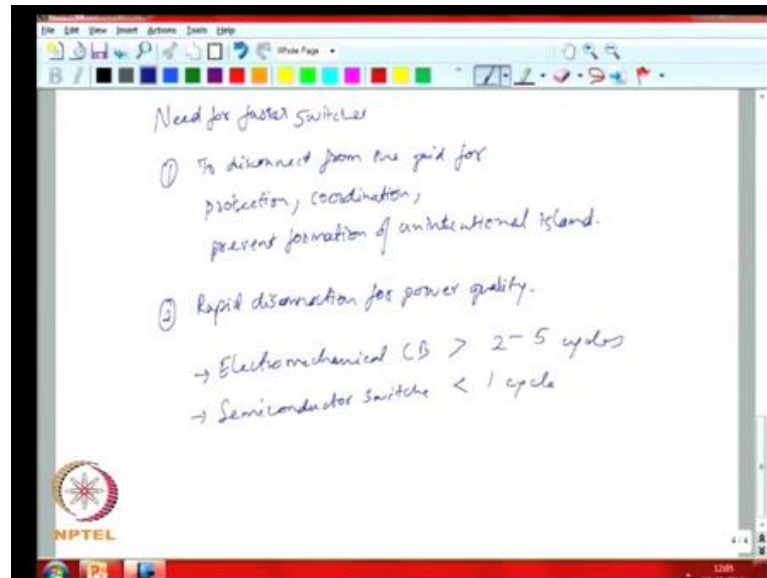 File Edit View Insert Actions Tools Help
Whole Page
B I
Need for faster switches
① To disconnect from the grid for
protection, coordination,
prevent formation of unintentional island.
② Rapid disconnection for power quality.
→ Electromechanical CB > 2-5 cycles
→ Semiconductor switche < 1 cycle
NPTEL
4/4
12:05